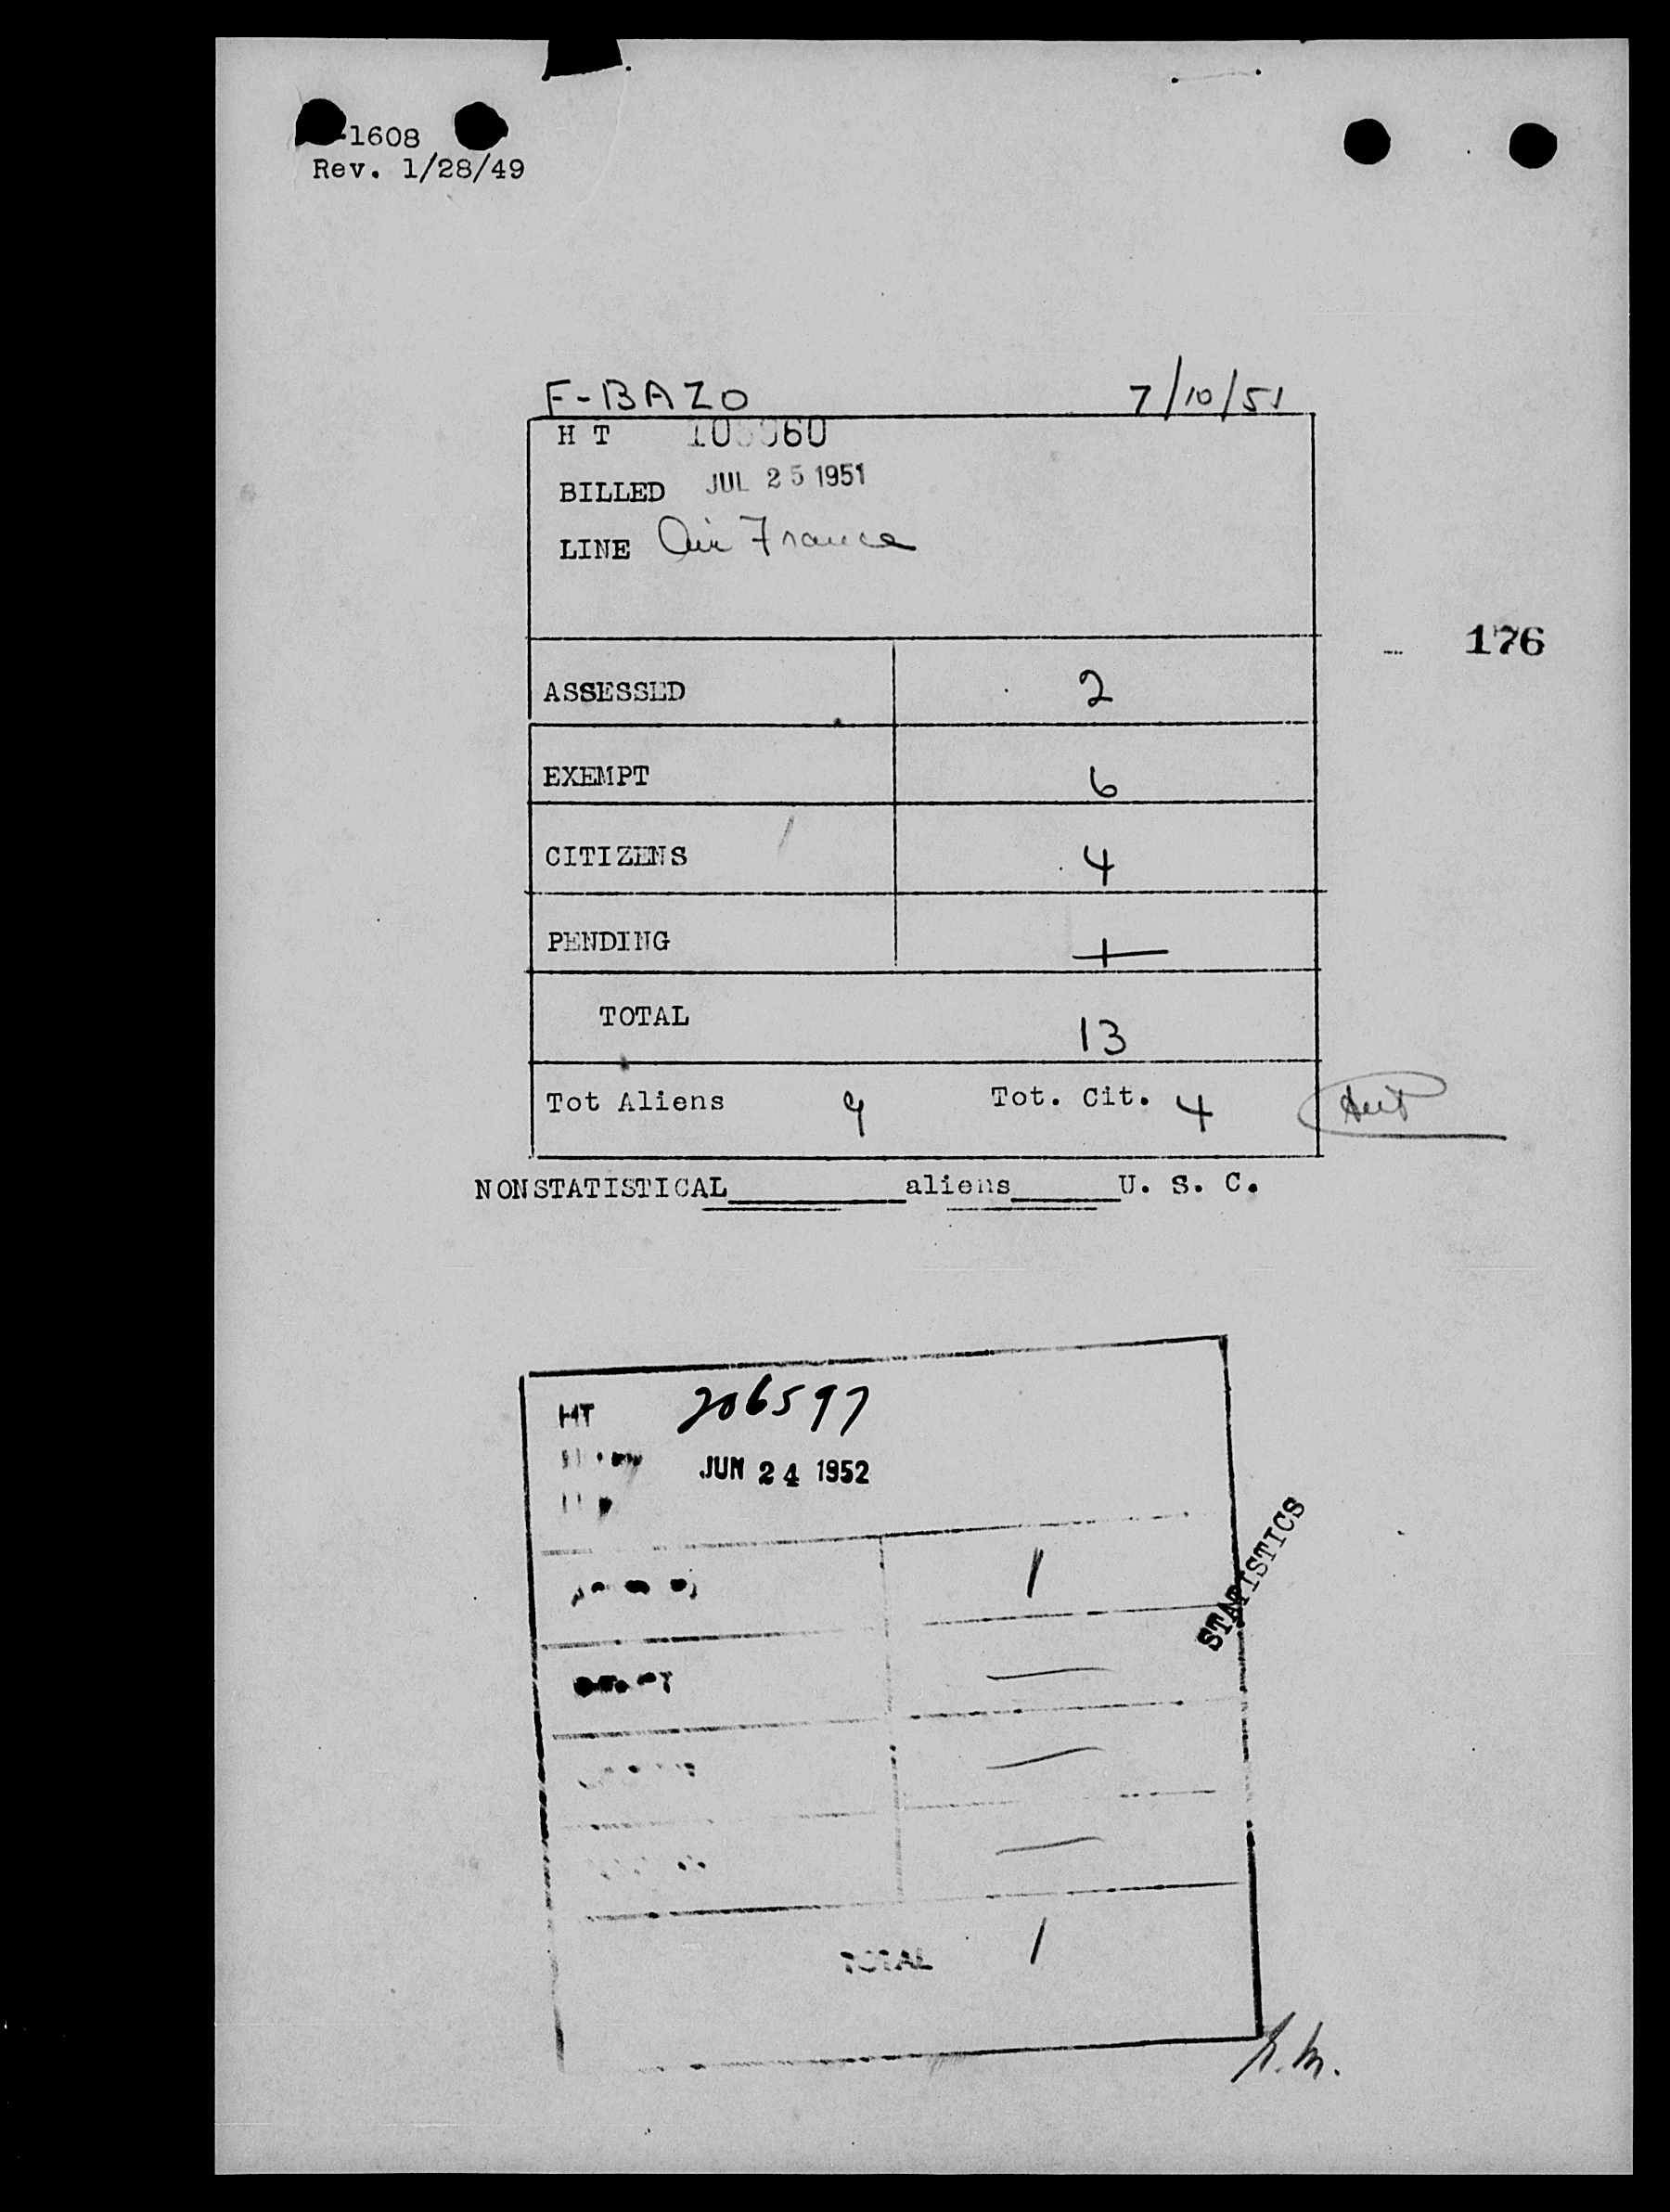 -1608
Rev. 1/28/49
F-BAZO 7/10/51
H T
BILLED JUL 25 1951
LINE Air France
176
ASSESSED 2
EXEMPT 6
CITIZENS 4
PENDING 1
TOTAL 13
Tot Aliens 9 Tot. Cit. 4
NONSTATISTICAL aliens U. S. C.
HT 206597
JUN 24 1952
1
STATISTICS
TOTAL 1